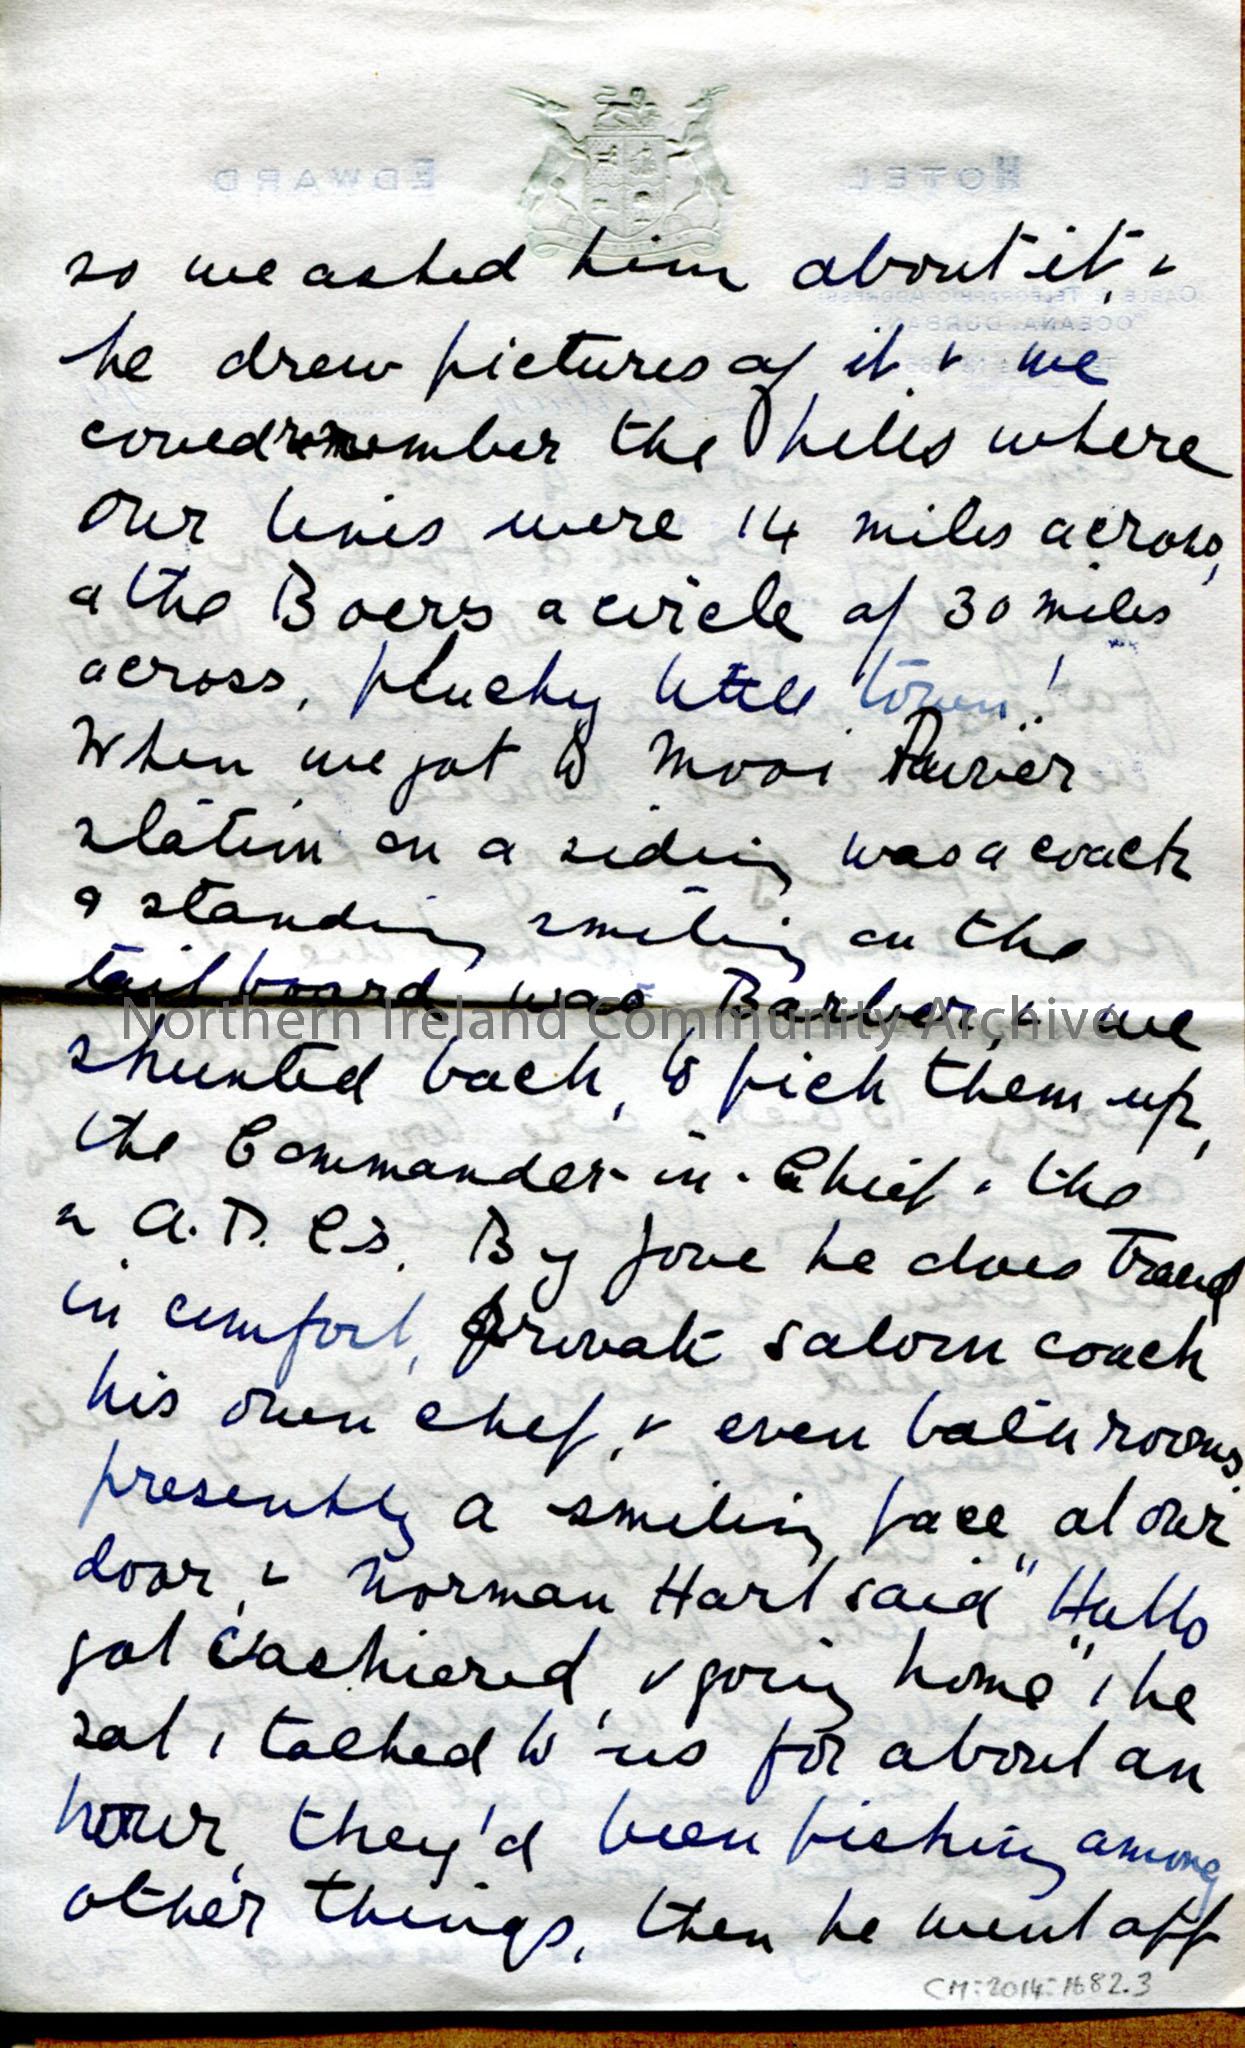 HOTEL EDWARD
CABLE & TELEGRAPHIC ADDRESS:
"OCEANA" DURBAN
so we asked him about it, &
he drew pictures of it & we
could remember the hills where
our lines were 14 miles across,
& the Boers a circle of 30 miles
across, plucky little town!
When we got to Mooi River
station on a siding was a coach
& standing smiling on the
tail board was Barber, & we
shunted back, to pick them up,
the Commander-in-Chief & the
A.D.Cs. By Jove he does travel
in comfort, private saloon coach
his own chef, & even bath rooms,
presently a smiling face at our
door, & Norman Hart said "Hullo
got cashiered, & going home", he
sat & talked to us for about an
hour, they'd been fishing among
other things, then he went off
Northern Ireland Community Archive
CM:2014:1682.3